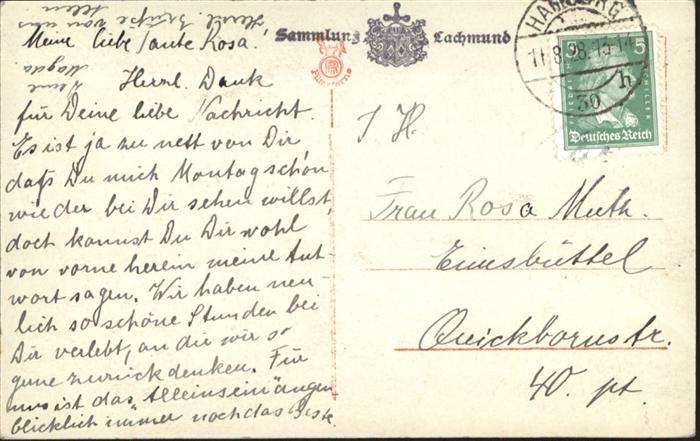 Herzl. Grüße von uns
allen
Deine
Magda.
Meine liebe Tante Rosa.
Herzl. Dank
für Deine liebe Nachricht.
Es ist ja zu nett von Dir
daß Du mich Montag schon
wieder bei Dir sehen willst,
doch kannst Du Dir wohl
von vorne herein meine Ant-
wort sagen. Wir haben neu-
lich so schöne Stunden bei
Dir verlebt, an die wir so
gerne zurückdenken. Für
uns ist das Alleinsein augen
blicklich immer noch das Beste.
Sammlung Lachmund
HAMBURG
11.8.28.
30 h
5 5
Deutsches Reich
I H.
Frau Rosa Muth.
Eimsbüttel
Quickbornstr.
40. pt.